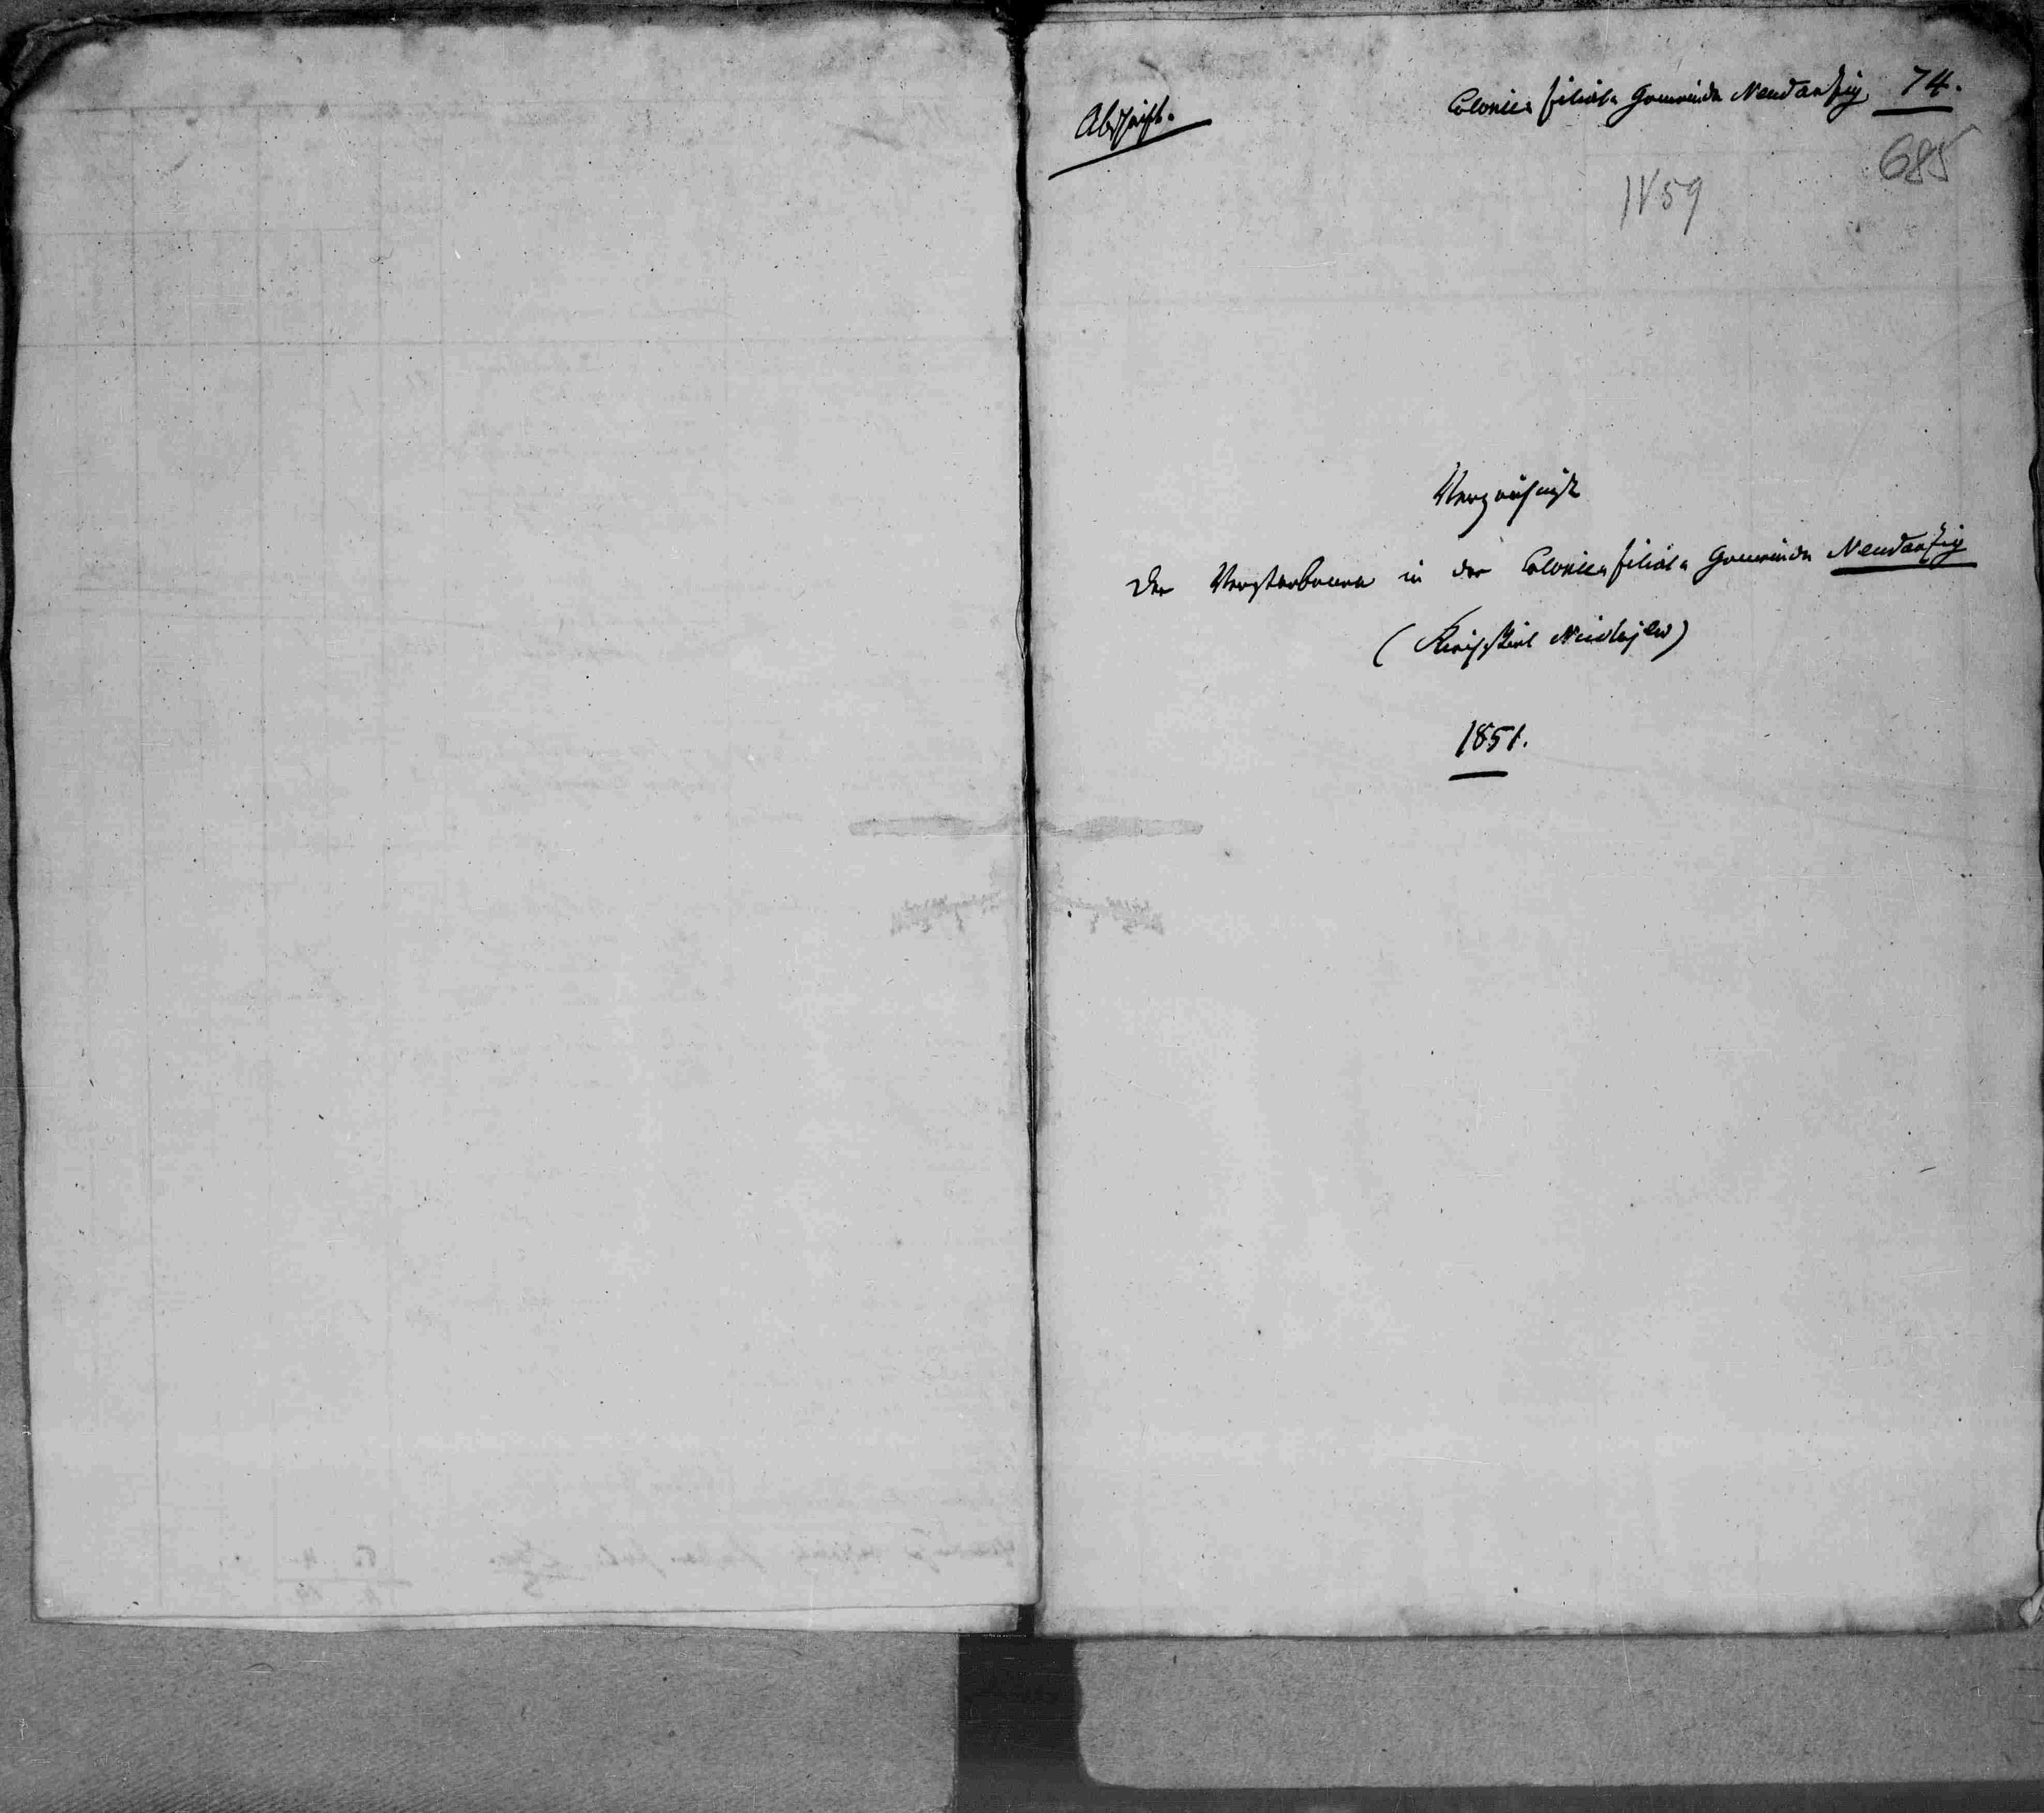 Abschrift.
Colonie filial Gemeinde Neudanzig 74.
685
IV 59
Verzeichniß
der Verstorbenen in der Colonie filial Gemeinde Neudanzig
(Kirchspiel Nicolajew)
1851.